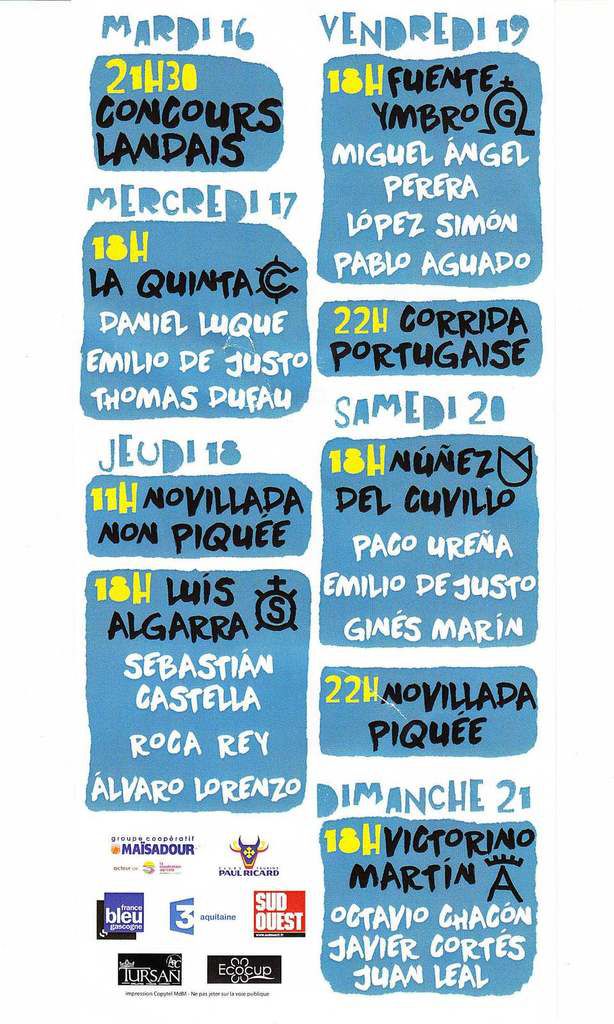 MARDI 16
21H30
CONCOURS
LANDAIS
MERCREDI 17
18H
LA QUINTA
DANIEL LUQUE
EMILIO DE JUSTO
THOMAS DUFAU
JEUDI 18
11H NOVILLADA
NON PIQUÉE
18H LUÍS
ALGARRA S
SEBASTIÁN
CASTELLA
ROCA REY
ÁLVARO LORENZO
VENDREDI 19
18H FUENTE
YMBRO G
MIGUEL ÁNGEL
PERERA
LÓPEZ SIMÓN
PABLO AGUADO
22H CORRIDA
PORTUGAISE
SAMEDI 20
18H NÚÑEZ
DEL CUVILLO
PACO UREÑA
EMILIO DE JUSTO
GINÉS MARÍN
22H NOVILLADA
PIQUÉE
DIMANCHE 21
18H VICTORINO
MARTÍN A
OCTAVIO CHACÓN
JAVIER CORTÉS
JUAN LEAL
groupe coopératif
MAÏSADOUR
PAUL RICARD
france
bleu
gascogne
3 aquitaine
SUD
OUEST
www.sudouest.fr
TURSAN
Ecocup
impression Copytel MdM - Ne pas jeter sur la voie publique